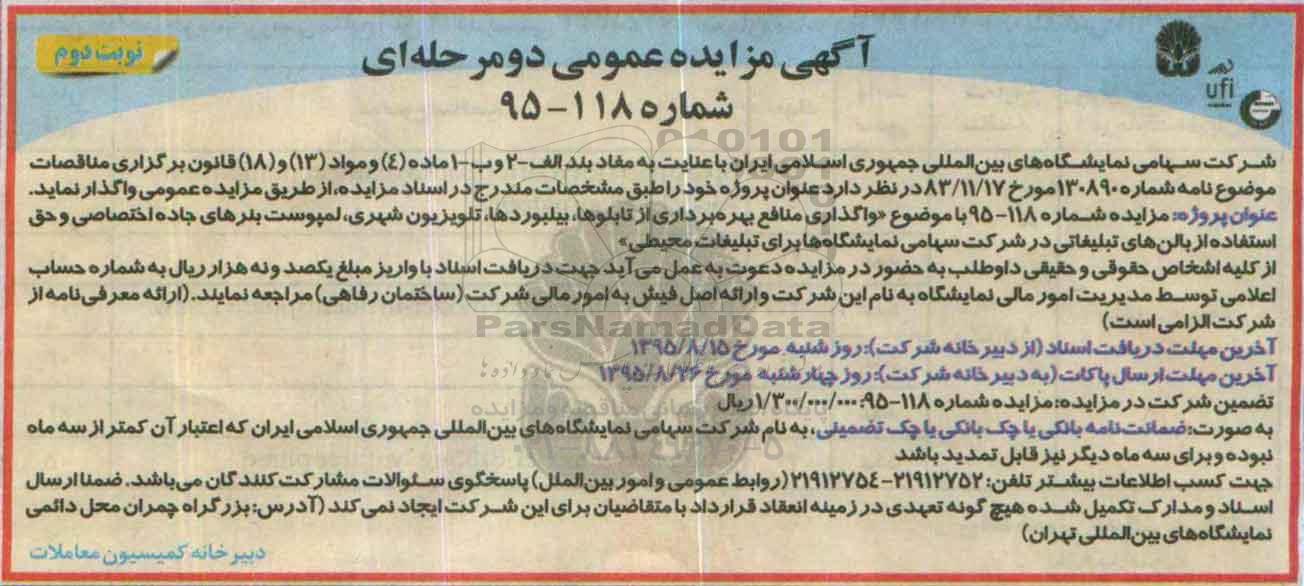 نوبت دوم
آگهی مزایده عمومی دومرحله‌ای
شماره ۱۱۸-۹۵
ufi
شرکت سهامی نمایشگاه‌های بین‌المللی جمهوری اسلامی ایران با عنایت به مفاد بند الف-۲ و ب-۱ ماده (٤) و مواد (۱۳) و (۱۸) قانون برگزاری مناقصات
موضوع نامه شماره ۱۳۰۸۹۰ مورخ ۸۳/۱۱/۱۷ در نظر دارد عنوان پروژه خود را طبق مشخصات مندرج در اسناد مزایده، از طریق مزایده عمومی واگذار نماید.
عنوان پروژه: مزایده شماره ۱۱۸-۹۵ با موضوع «واگذاری منافع بهره‌برداری از تابلوها، بیلبوردها، تلویزیون شهری، لمپوست بنرهای جاده اختصاصی و حق
استفاده از بالن‌های تبلیغاتی در شرکت سهامی نمایشگاه‌ها برای تبلیغات محیطی»
از کلیه اشخاص حقوقی و حقیقی داوطلب به حضور در مزایده دعوت به عمل می‌آید جهت دریافت اسناد با واریز مبلغ یکصد و نه هزار ریال به شماره حساب
اعلامی توسط مدیریت امور مالی نمایشگاه به نام این شرکت و ارائه اصل فیش به امور مالی شرکت (ساختمان رفاهی) مراجعه نمایند. (ارائه معرفی‌نامه از
شرکت الزامی است)
ParsNamadData
آخرین مهلت دریافت اسناد (از دبیرخانه شرکت): روز شنبه مورخ ۱۳۹۵/۸/۱۵
آخرین مهلت ارسال پاکات (به دبیرخانه شرکت): روز چهارشنبه مورخ ۱۳۹۵/۸/۲۶
تضمین شرکت در مزایده: مزایده شماره ۱۱۸-۹۵: ۱/۳۰۰/۰۰۰/۰۰۰ ریال
به صورت: ضمانت‌نامه بانکی یا چک بانکی یا چک تضمینی، به نام شرکت سهامی نمایشگاه‌های بین‌المللی جمهوری اسلامی ایران که اعتبار آن کمتر از سه ماه
نبوده و برای سه ماه دیگر نیز قابل تمدید باشد
جهت کسب اطلاعات بیشتر تلفن: ۲۱۹۱۲۷۵۲-۲۱۹۱۲۷۵٤ (روابط عمومی و امور بین‌الملل) پاسخگوی سئوالات مشارکت کنندگان می‌باشد. ضمنا ارسال
اسناد و مدارک تکمیل شده هیچ گونه تعهدی در زمینه انعقاد قرارداد با متقاضیان برای این شرکت ایجاد نمی‌کند (آدرس: بزرگراه چمران محل دائمی
نمایشگاه‌های بین‌المللی تهران)
دبیرخانه کمیسیون معاملات